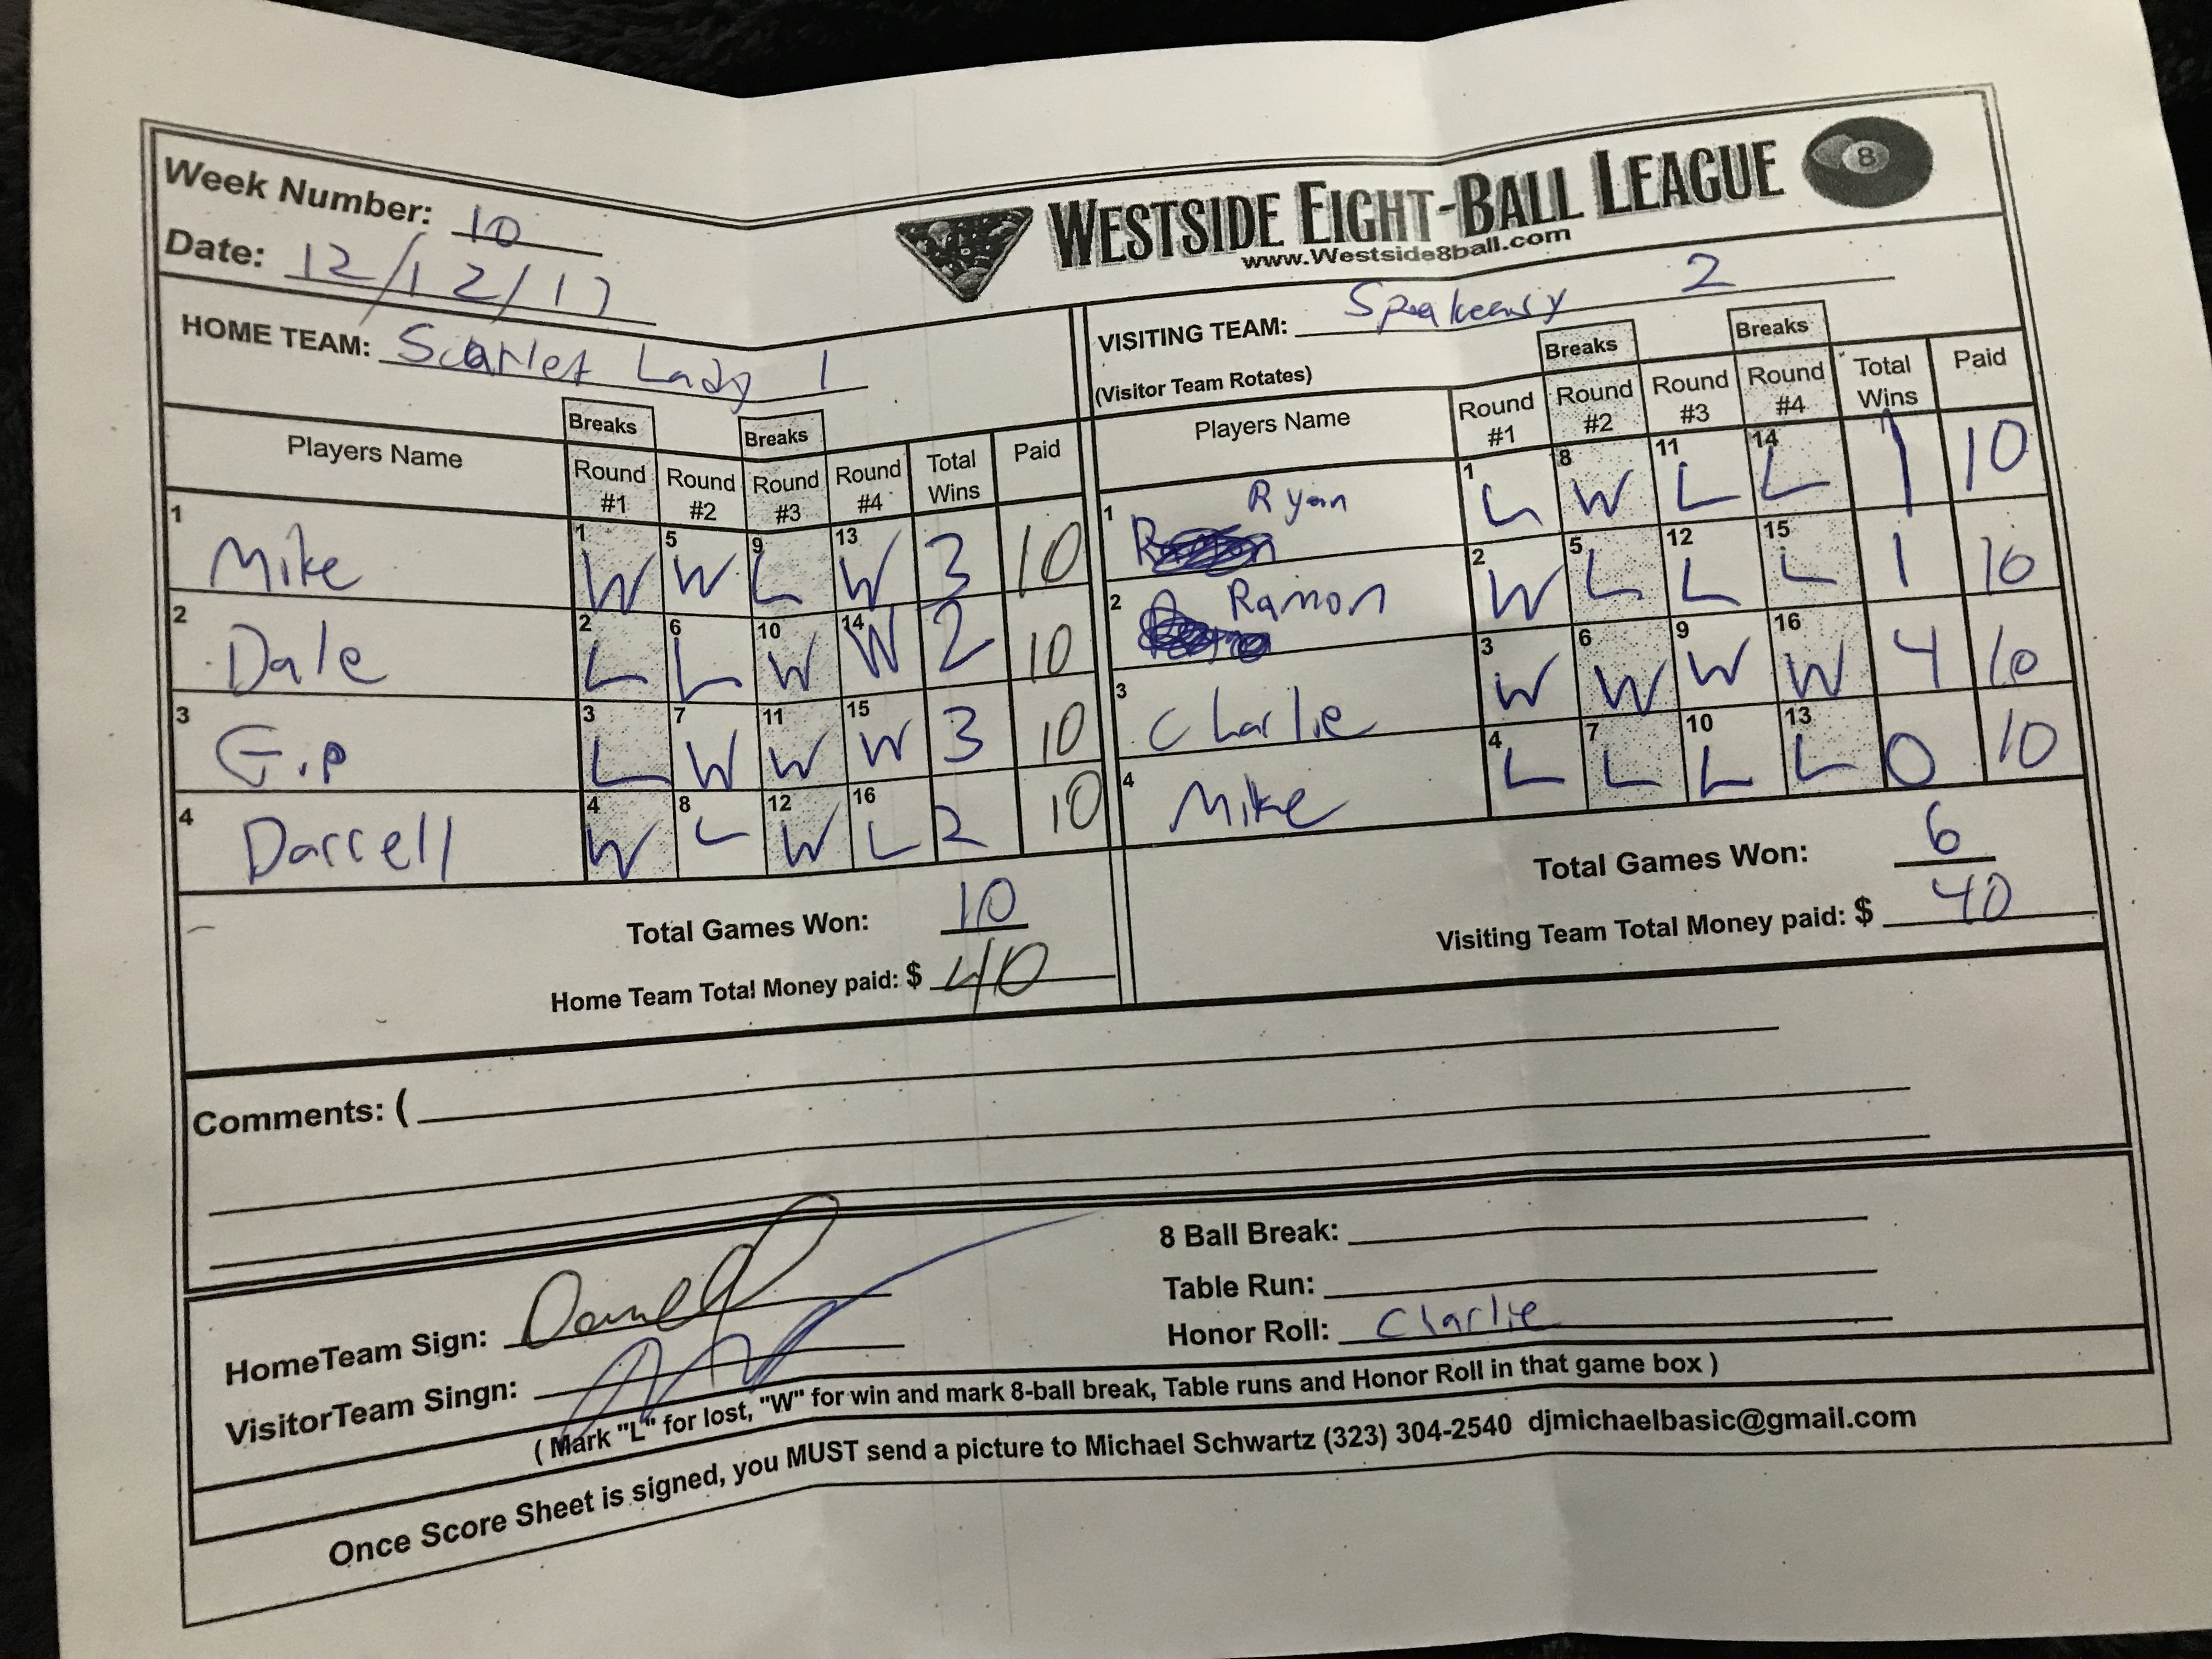 Week Number: 10
Date: 12/12/17
WESTSIDE EIGHT-BALL LEAGUE 8
www.Westside8ball.com
HOME TEAM: Scarlet Lady 1
Breaks Breaks
Players Name Round #1 Round #2 Round #3 Round #4 Total Wins Paid
1 Mike 1 W 5 W 9 L 13 W 3 10
2 Dale 2 L 6 L 10 W 14 W 2 10
3 G.p 3 L 7 W 11 W 15 W 3 10
4 Darrell 4 W 8 L 12 W 16 L 2 10
Total Games Won: 10
Home Team Total Money paid: $ 40
VISITING TEAM: Speakeasy 2
(Visitor Team Rotates)
Breaks Breaks
Players Name Round #1 Round #2 Round #3 Round #4 Total Wins Paid
1 Ryan 1 L 8 W 11 L 14 L 1 10
2 Ramon 2 W 5 L 12 L 15 L 1 10
3 Charlie 3 W 6 W 9 W 16 W 4 10
4 Mike 4 L 7 L 10 L 13 L 0 10
Total Games Won: 6
Visiting Team Total Money paid: $ 40
Comments: (
HomeTeam Sign: Darrell
VisitorTeam Singn:
8 Ball Break:
Table Run:
Honor Roll: Charlie
( Mark "L" for lost, "W" for win and mark 8-ball break, Table runs and Honor Roll in that game box )
Once Score Sheet is signed, you MUST send a picture to Michael Schwartz (323) 304-2540 djmichaelbasic@gmail.com